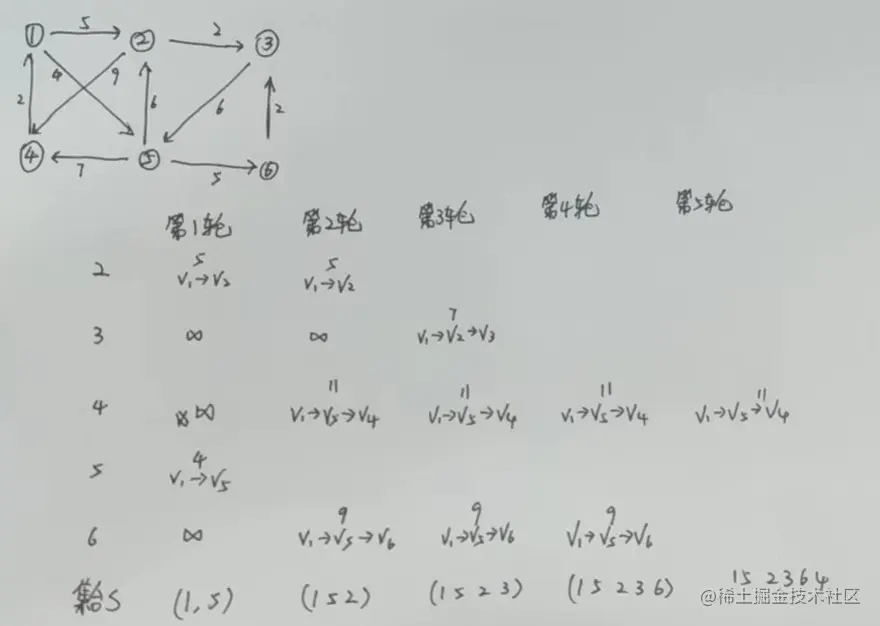 ① 5 ② 2 ③
2 4 9 6 6 2
④ 7 ⑤ 5 ⑥
第1轮 第2轮 第3轮 第4轮 第5轮
5 5
2 V₁→V₂ V₁→V₂
7
3 ∞ ∞ V₁→V₂→V₃
11 11 11 11
4 ∞ V₁→V₅→V₄ V₁→V₅→V₄ V₁→V₅→V₄ V₁→V₅→V₄
4
5 V₁→V₅
9 9 9
6 ∞ V₁→V₅→V₆ V₁→V₅→V₆ V₁→V₅→V₆
集合S (1,5) (1 5 2) (1 5 2 3) (1 5 2 3 6) 1 5 2 3 6 4
@稀土掘金技术社区